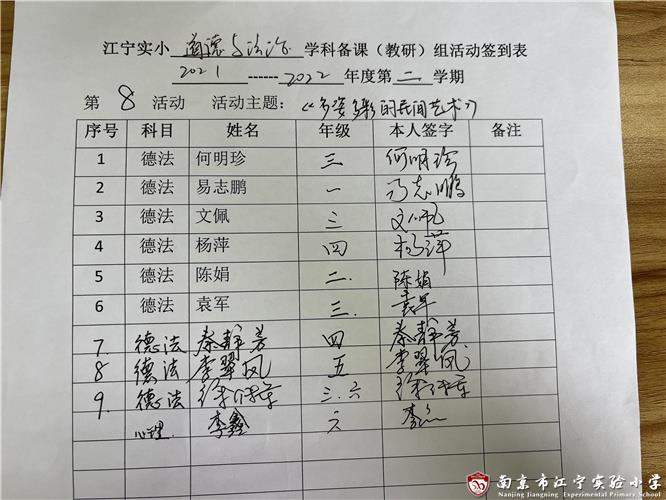 江宁实小 道德与法治 学科备课（教研）组活动签到表
2021 ------ 2022 年度第 二 学期
第 8 活动 活动主题：《多姿多彩的民间艺术》
序号 科目 姓名 年级 本人签字 备注
1 德法 何明珍 三 何明珍
2 德法 易志鹏 一 易志鹏
3 德法 文佩 三 文佩
4 德法 杨萍 四 杨萍
5 德法 陈娟 二. 陈娟
6 德法 袁军 三. 袁军
7. 德法 秦静芳 四 秦静芳
8 德法 李翠凤 五 李翠凤
9. 德法 三.六
心理. 李鑫 六 李鑫
南京市江宁实验小学
Nanjing Jiangning Experimental Primary School